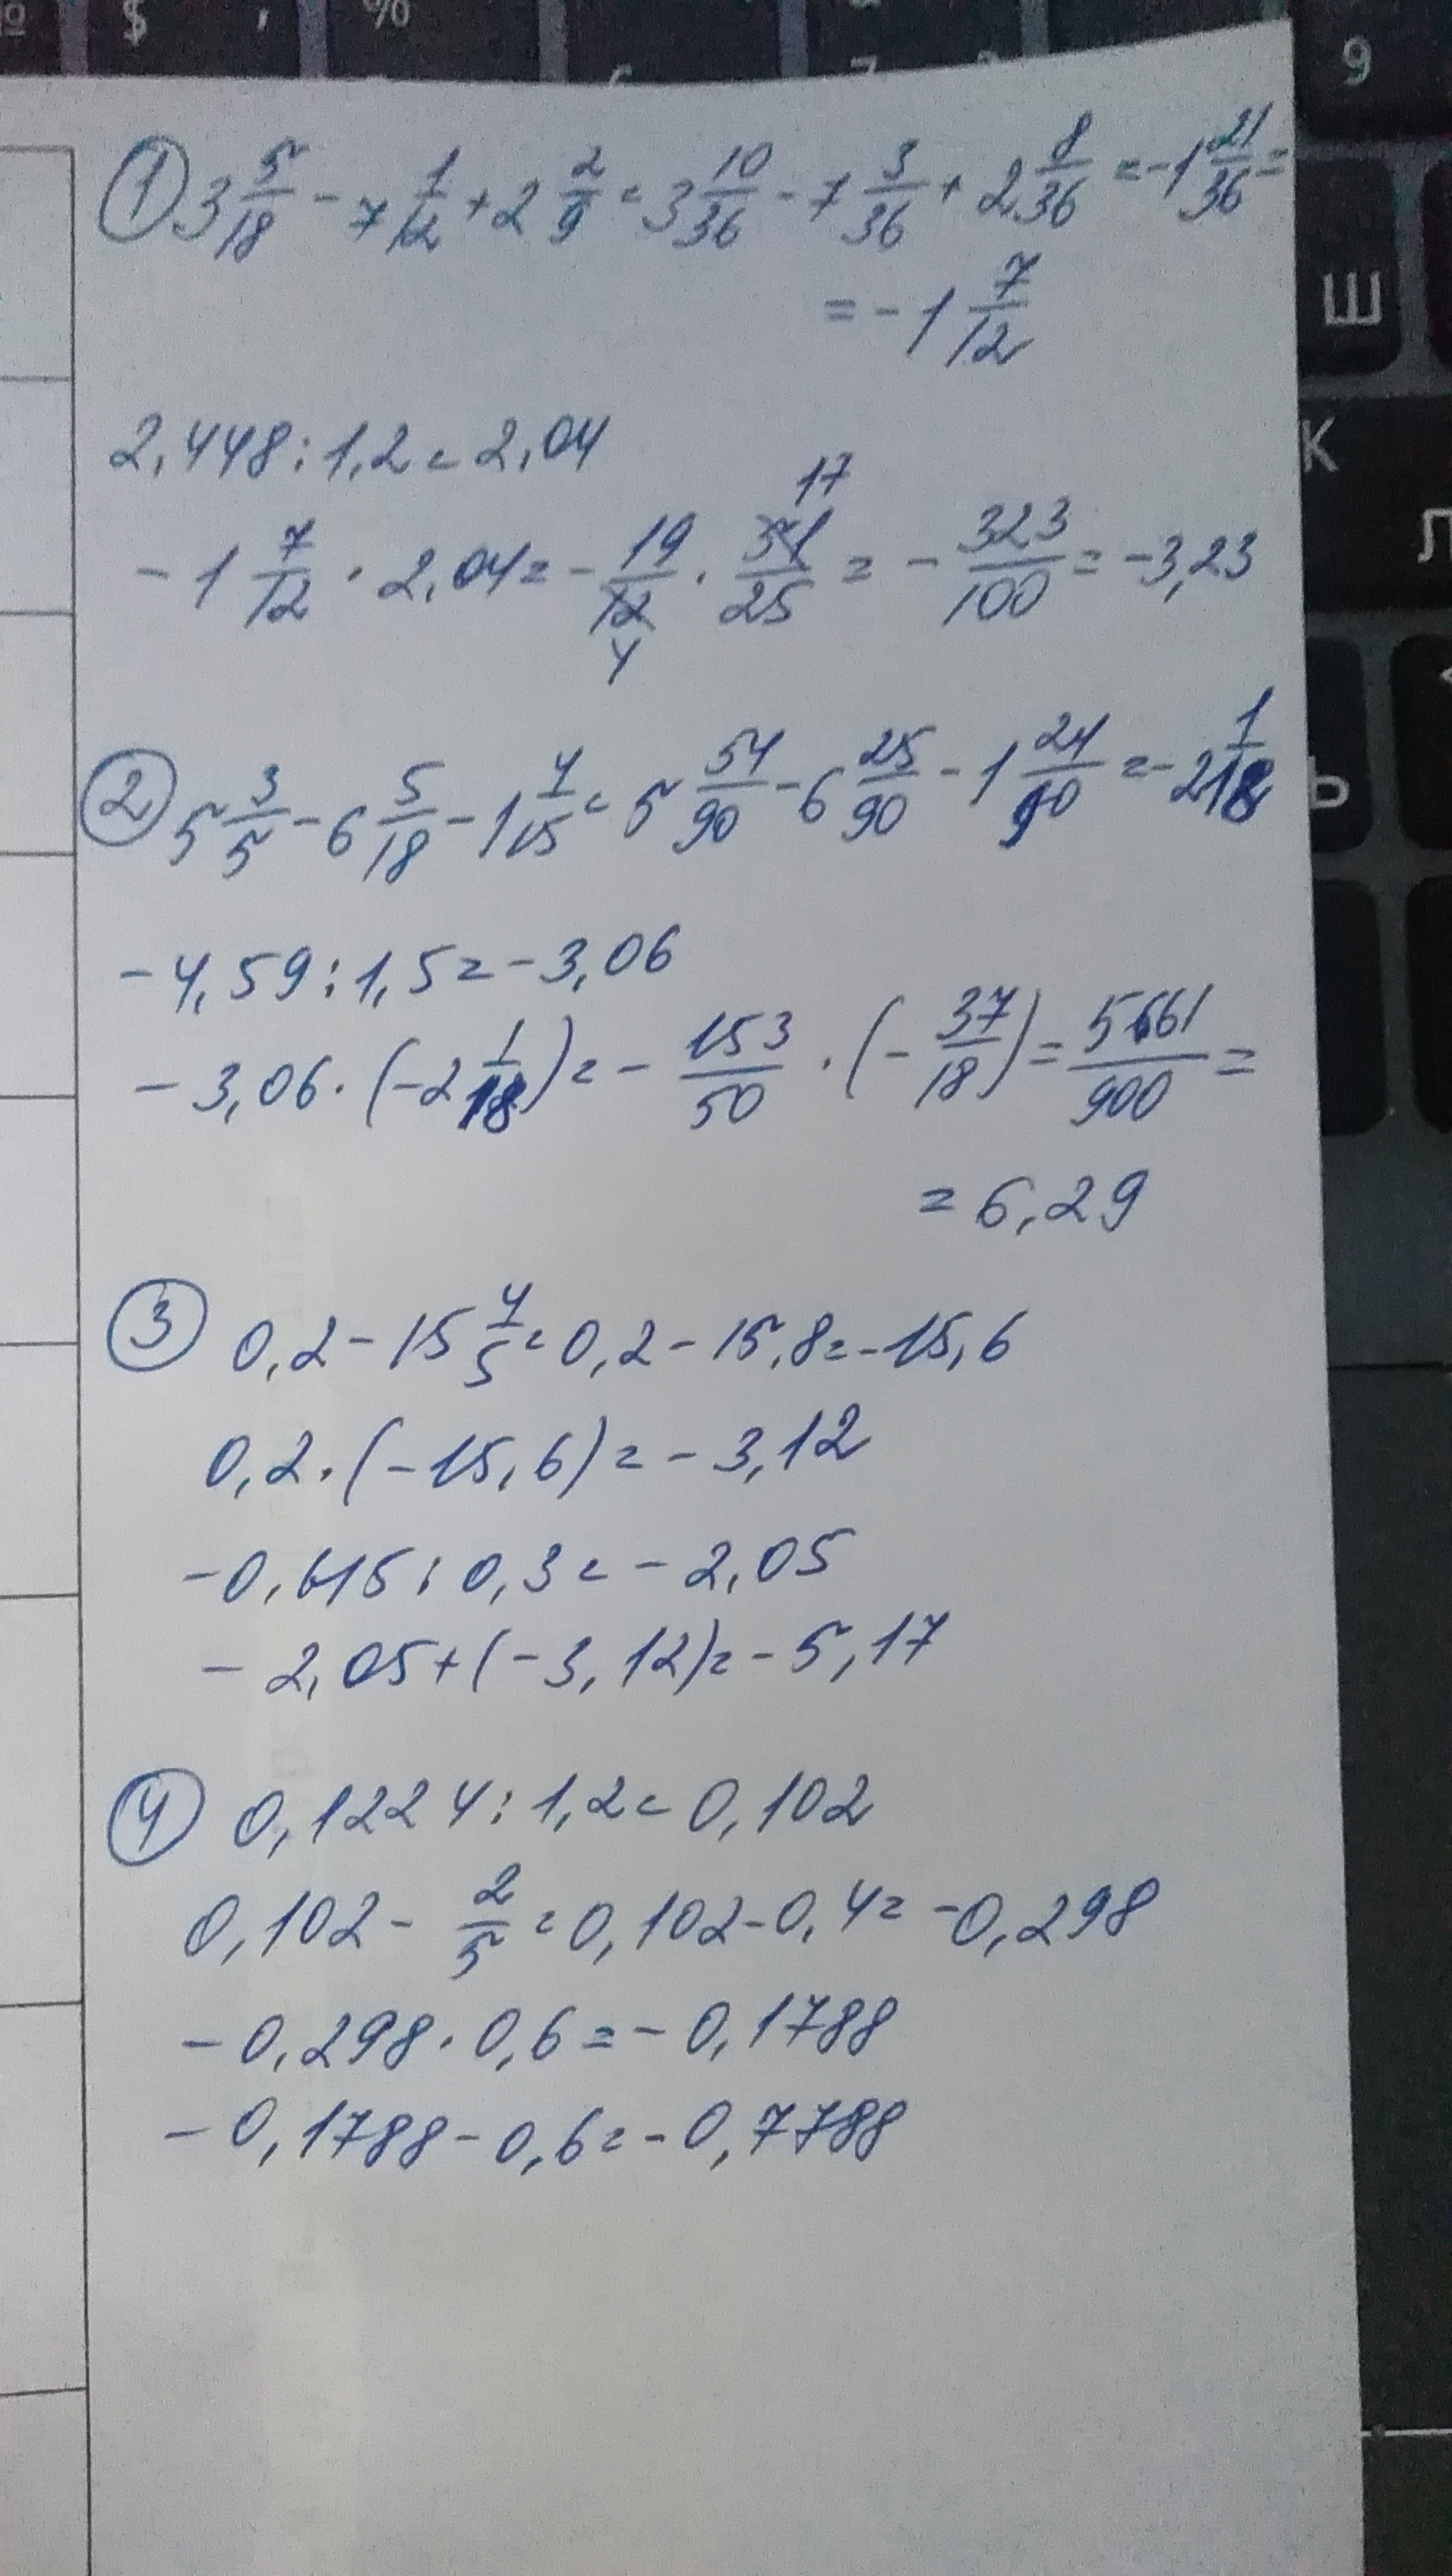 ① 3 5/18 - 7 1/12 + 2 2/9 = 3 10/36 - 7 3/36 + 2 8/36 = -1 21/36 =
= -1 7/12
2,448 : 1,2 = 2,04
17
-1 7/12 · 2,04 = - 19/12 · 51/25 = - 323/100 = -3,23
4
② 5 3/5 - 6 5/18 - 1 4/15 = 5 54/90 - 6 25/90 - 1 24/90 = -2 1/18
-4,59 : 1,5 = -3,06
-3,06 · (-2 1/18) = - 153/50 · (- 37/18) = 5661/900 =
= 6,29
③ 0,2 - 15 4/5 = 0,2 - 15,8 = -15,6
0,2 · (-15,6) = -3,12
-0,615 : 0,3 = -2,05
-2,05 + (-3,12) = -5,17
④ 0,1224 : 1,2 = 0,102
0,102 - 2/5 = 0,102 - 0,4 = -0,298
-0,298 · 0,6 = -0,1788
-0,1788 - 0,6 = -0,7788
$
%
9
Ш
К
Л
Ь